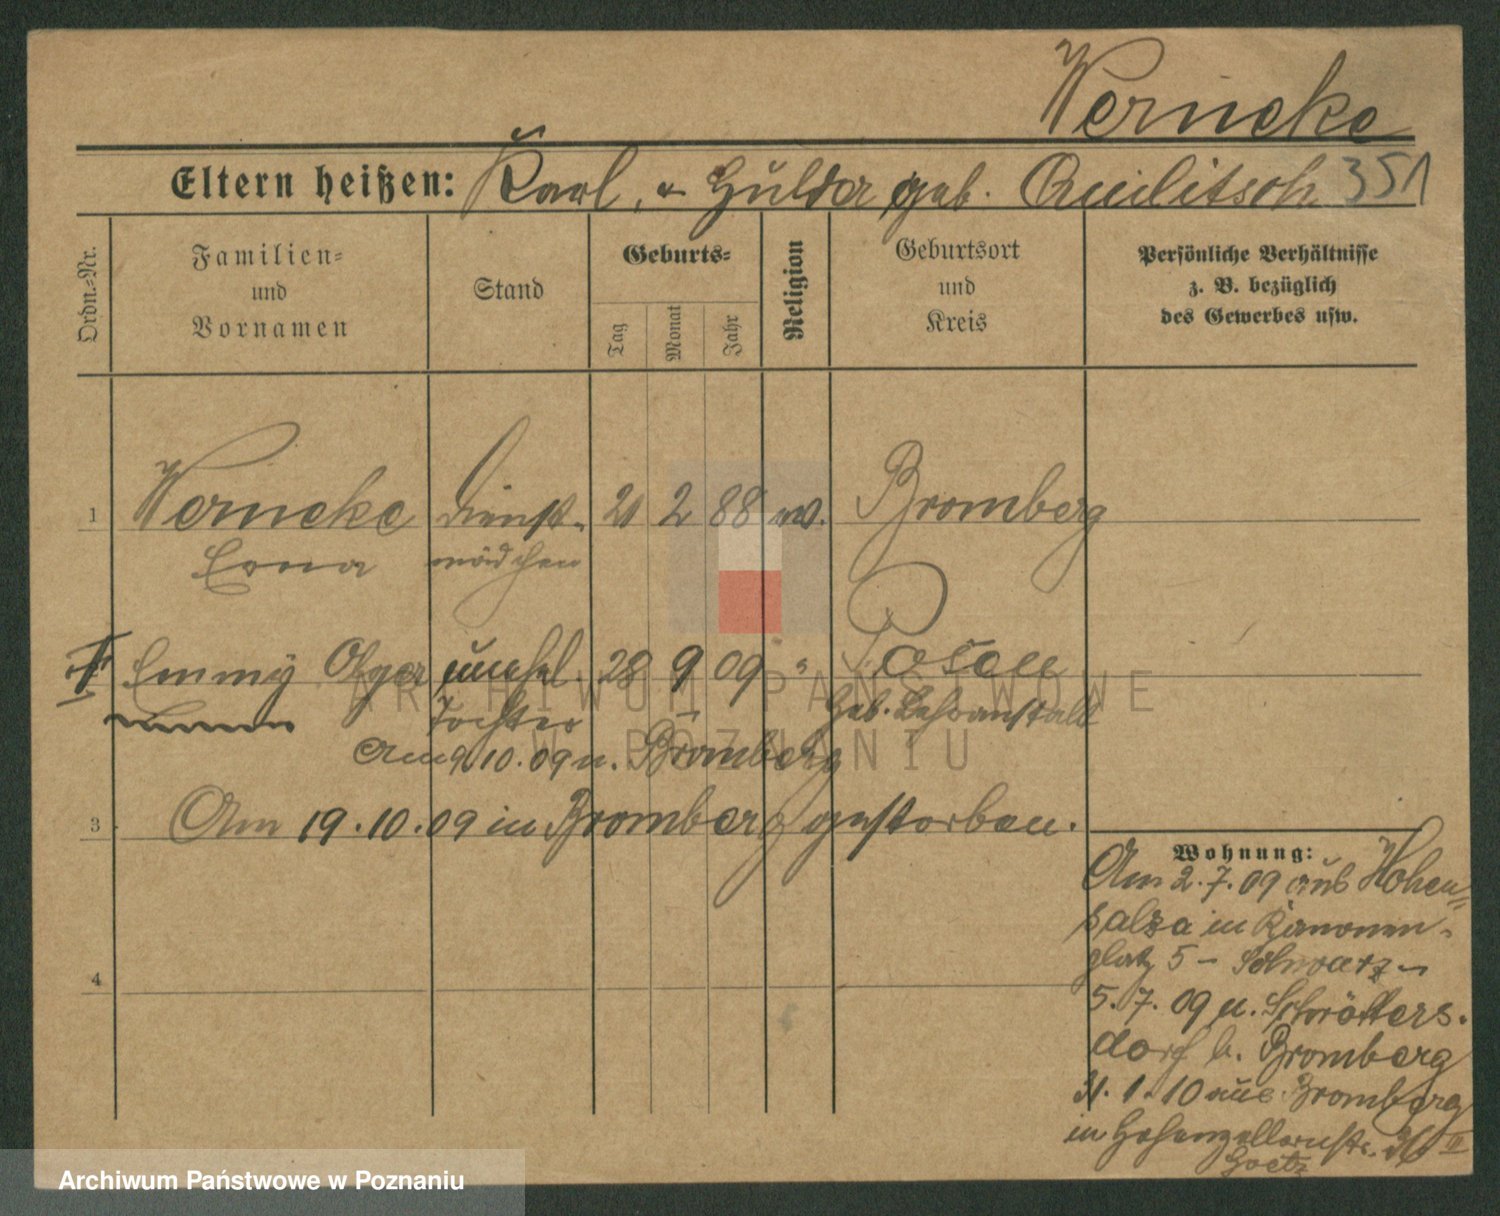 Werneke
Eltern heißen: Karl, u Hulda geb. 351
Ordn.=Nr.
Familien=
und
Vornamen
Stand
Geburts=
Tag
Monat
Jahr
Religion
Geburtsort
und
Kreis
Persönliche Verhältnisse
z. B. bezüglich
des Gewerbes usw.
1 Werneke Dienst- 21 2 88 ev. Bromberg
Erna mädchen
Emmy Olga unehel. 28 9 09 " Posen
Tochter Heb. Lehranstalt
Am 9.10.09 n. Bromberg
3 Am 19.10.09 in Bromberg gestorben.
4
Wohnung:
Am 2.7.09 aus Hohen=
salza in Kanonen-
platz 5 - Schwarz -
5.7.09 n. Schrötters-
dorf b. Bromberg
31.1.10 aus Bromberg
in Hohenzollernstr. 36 III
Goetz
ARCHIWUM PAŃSTWOWE
W POZNANIU
Archiwum Państwowe w Poznaniu